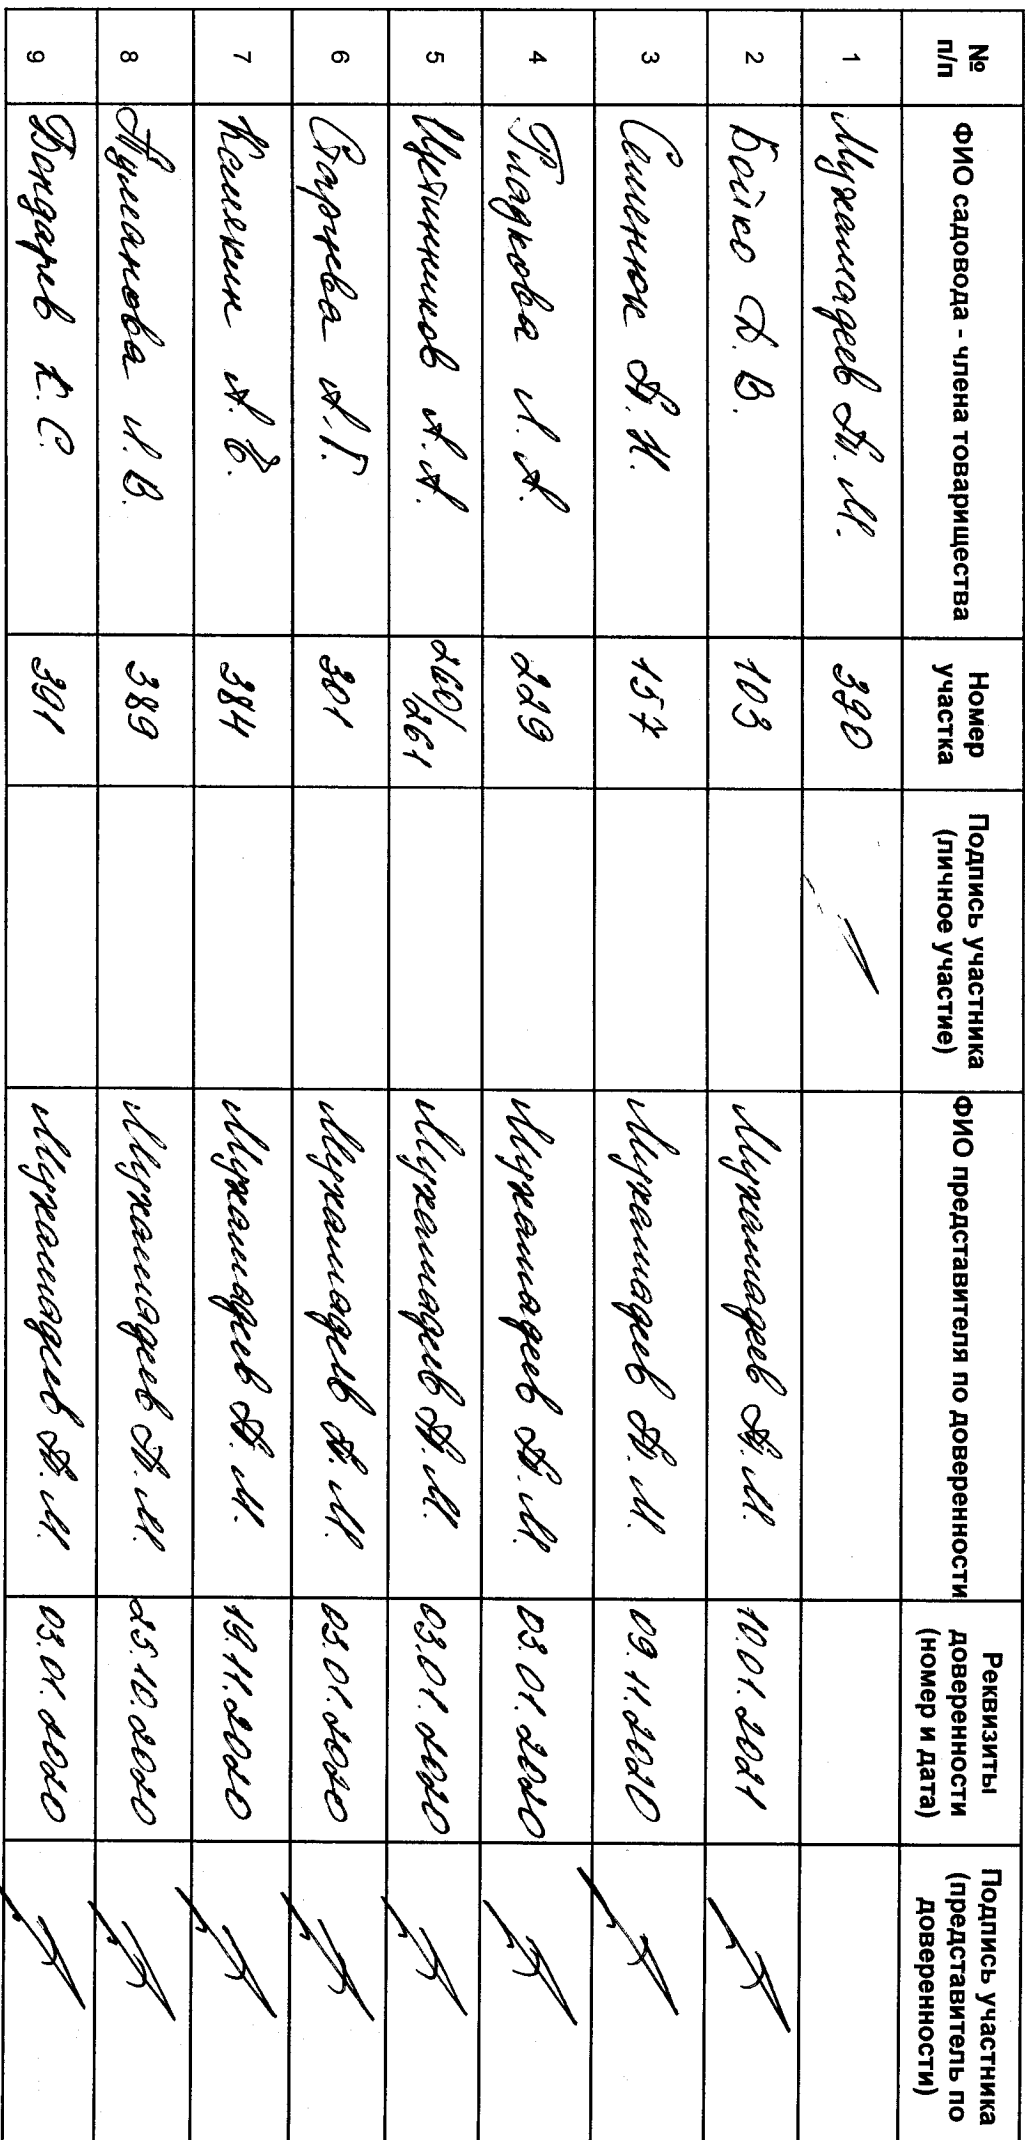 № п/п | ФИО садовода - члена товарищества | Номер участка | Подпись участника (личное участие) | ФИО представителя по доверенности | Реквизиты доверенности (номер и дата) | Подпись участника (представитель по доверенности)
1 | Мухамадеев А. М. | 390
2 | Бойко А. В. | 103 | Мухамадеев А. М. | 10.01.2021
3 | Семенюк А. Н. | 157 | Мухамадеев А. М. | 09.11.2020
4 | Гладкова Л. А. | 229 | Мухамадеев А. М. | 03.01.2020
5 | Щетинников А. А. | 260/261 | Мухамадеев А. М. | 03.01.2020
6 | А. Г. | 301 | Мухамадеев А. М. | 03.01.2020
7 | Камекин А. Е. | 384 | Мухамадеев А. М. | 19.11.2020
8 | Туманова Л. В. | 389 | Мухамадеев А. М. | 25.10.2020
9 | Бондарев К. С. | 391 | Мухамадеев А. М. | 03.01.2020